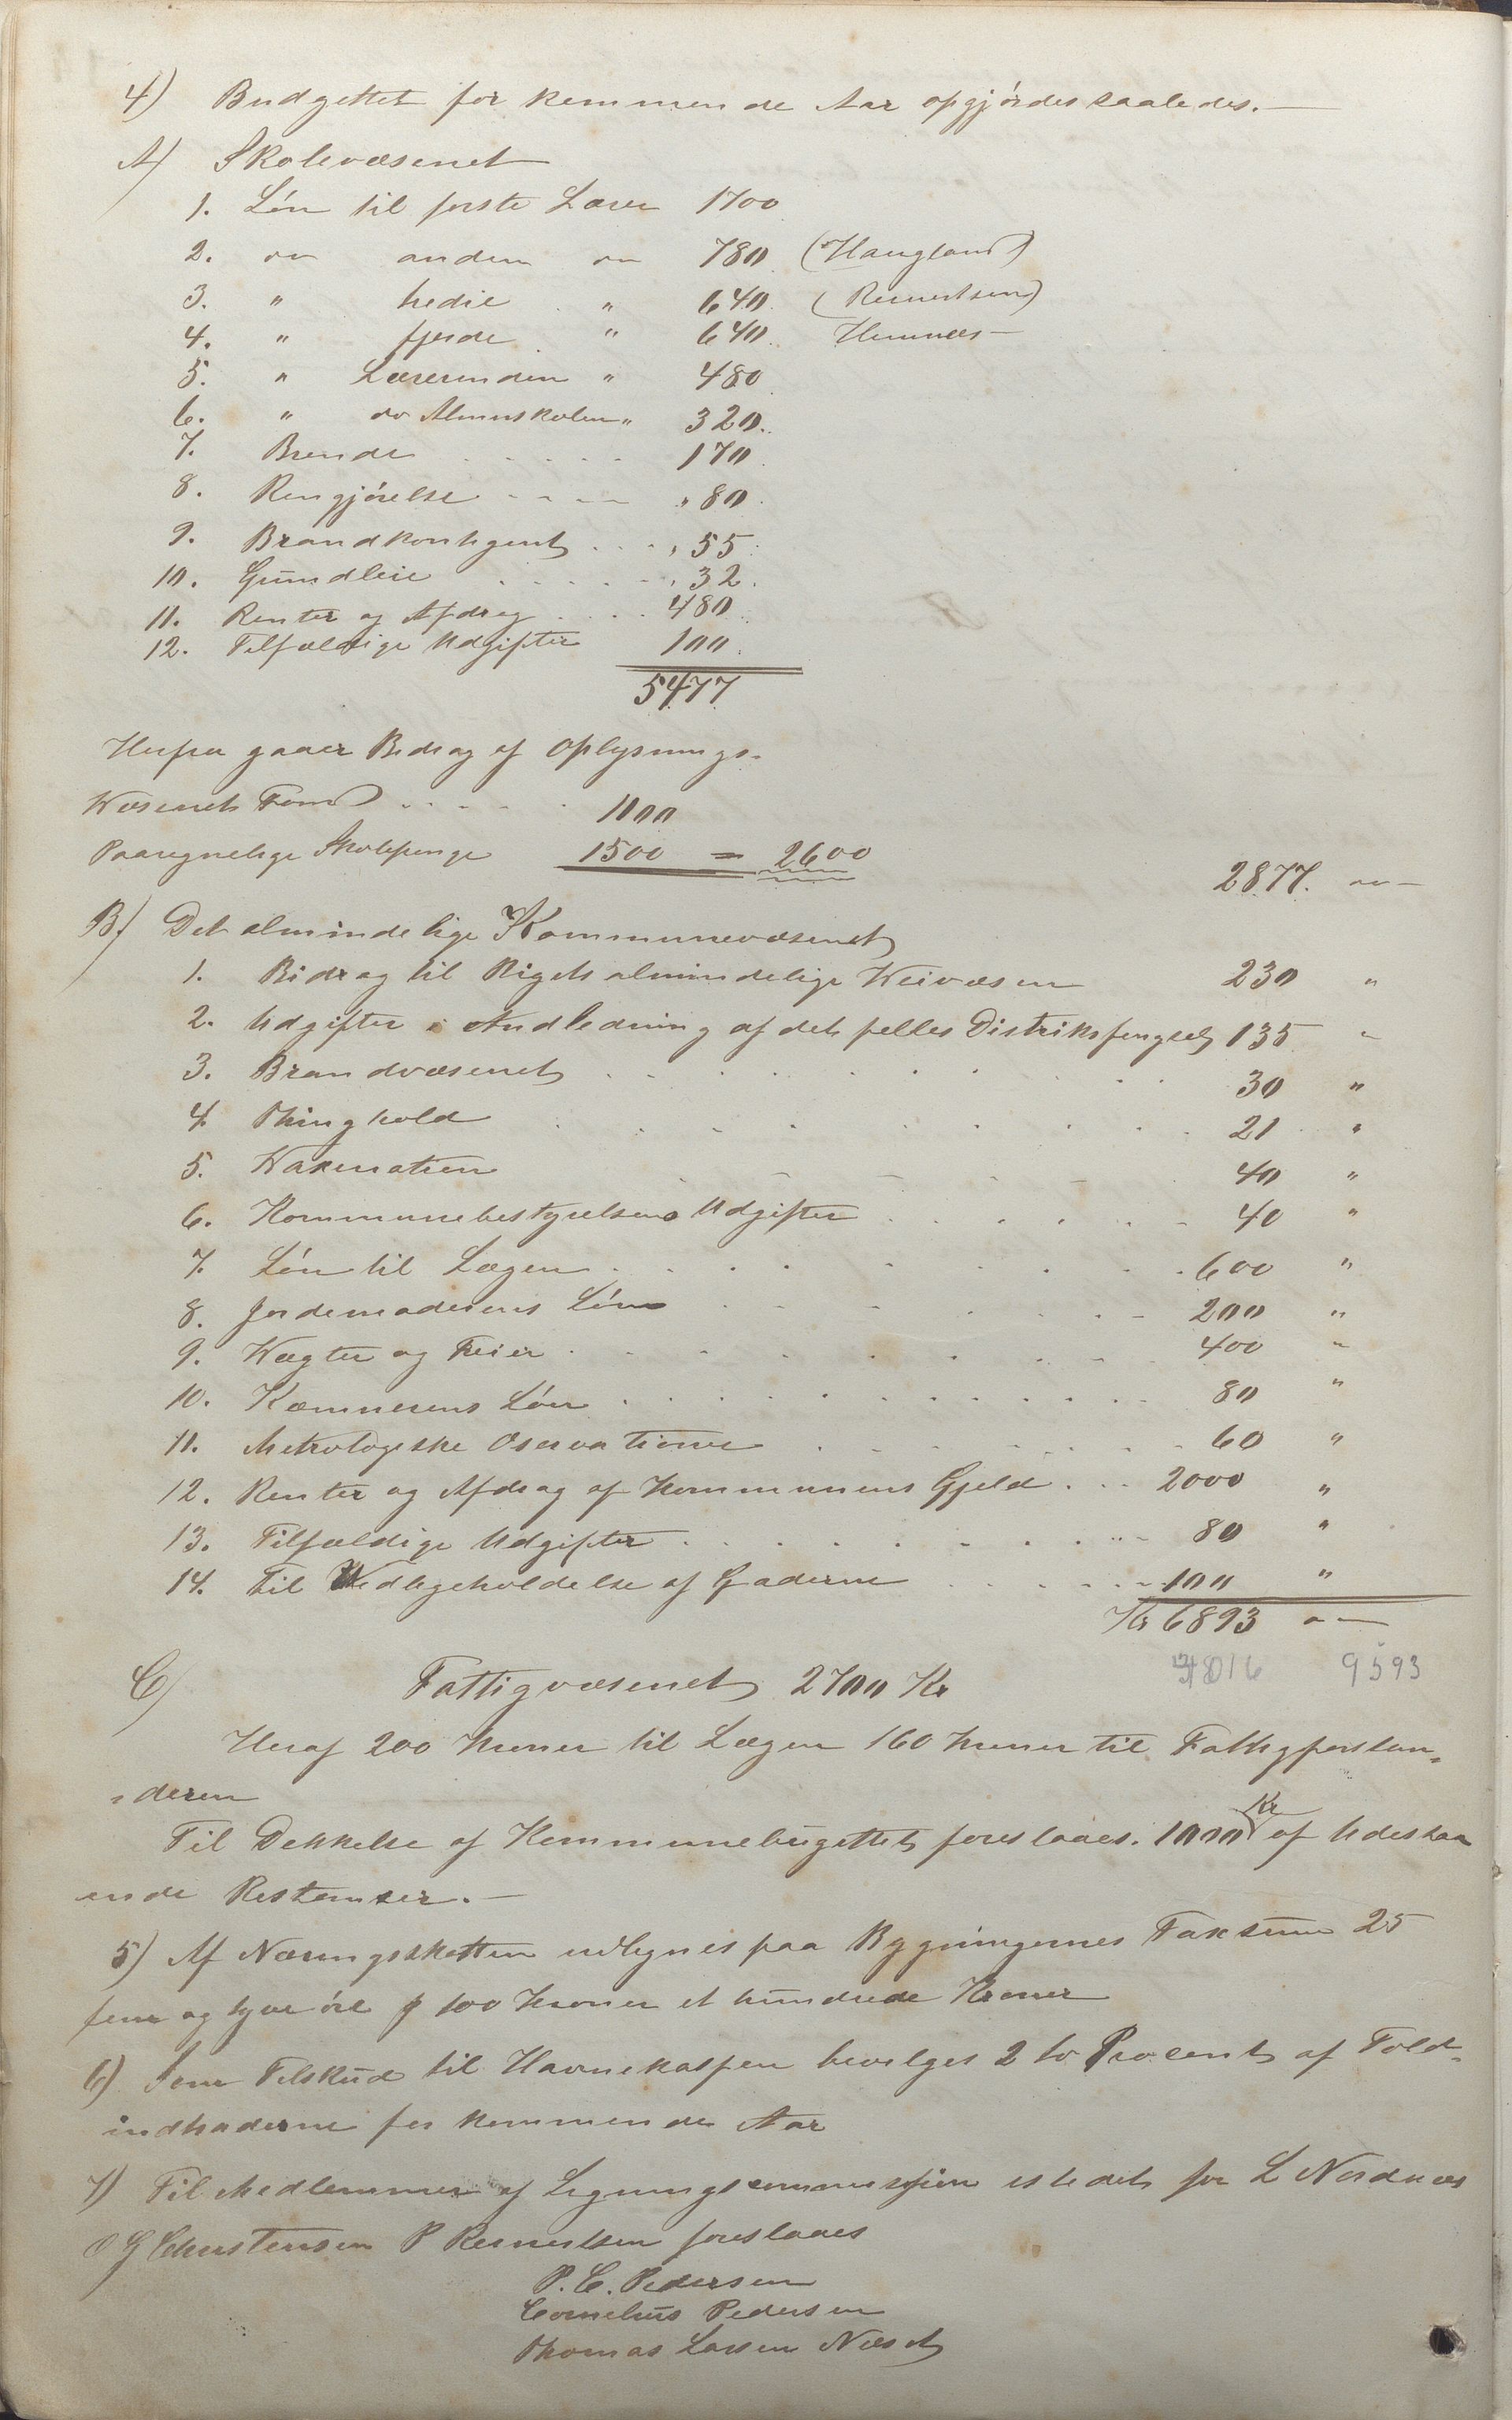 4) Budgettet for kommende Aar opgjördes saaledes.—
A/ Skolevæsenet
1. Lön til förste Lærer 1700
2. do anden do 780 (Haugland)
3. " tredie " 640 (Reinertsen)
4. " fjerde " 640 Hemnæs —
5. " Lærerinden " 480
6. " do Almuskolen " 320.
7. Brende . . . . . 170
8. Rengjörelse - - - - " 80
9. Brandkontigent . . . , 55
10. Grundleie . . . . . , 32
11. Renter og Afdrag . . . . 480
12. Tilfældige Udgifter 100
5477
Herfra gaaer Bidrag af Oplysnings-
Væsenets Fond . . . . . 1100
Paaregnelige Skolepenge 1500 = 2600
2877. " —
B/ Det almindelige Kommunevæsenet
1. Bidrag til Rigets almindelige Veivæsen 230 "
2. Udgifter i Andledning af det felles Distriksfengsel 135 "
3. Brandvæsenet . . . . . . . . 30 "
4. Thinghold . . . . . . . . 21 "
5. Vaxination - - - - - 40 "
6. Kommunebestyrelsens Udgifter . . . . . 40 "
7. Lön til Lægen . . . . . . . . 600 "
8. Jordemoderens Lön . . . . . . 200 "
9. Vægter og Feier . . . . . . . . 400 "
10. Kæmnerens Lön . . . . . . . . . 80 "
11. Metrologiske Oservationer . . . . . . 60 "
12. Renter og Afdrag af Kommunens Gjeld . . . 2000 "
13. Tilfældige Udgifter . . . . . . . . 80 "
14. Til Vedligeholdelse af Gaderne . . . . . 100 "
Kr 6893 " —
4016 9593
C/ Fattigvæsenet 2700 Kr
Heraf 200 Kroner til Lægen 160 kroner til Fattigforstan-
-deren
Til Dekkelse af Kommunebugettet foreslaaes. 1000 Kr af Udestaa
ende Restanser.—
5) Af Næringsskatten udlignes paa Bygningernes Taksum 25
fem og tyve öre p 100 Kroner et hundrede Kroner
6) Som Tilskud til Havnekassen bevilges 2 to Procent af Told-
indtraderne for kommende Aar
7) Til Medlemmer af Ligningscommissjon istedet for L Nordnæs
O G Christensen P Reinertsen foreslaaes
P. C. Pedersen
Cornelius Pedersen
Thomas Larsen Næset